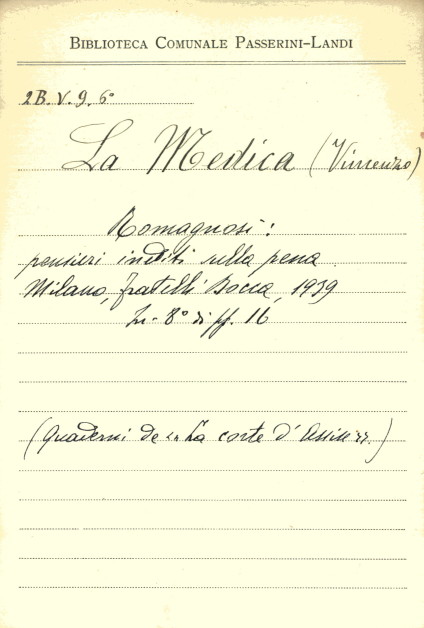 BIBLIOTECA COMUNALE PASSERINI-LANDI
2B. V. 9. 6°
La Medica (Vincenzo)
Romagnosi:
pensieri inediti sulla pena
Milano, fratelli Bocca, 1939
In-8° di pp. 16
(Quaderni de "La corte d'Assise".)